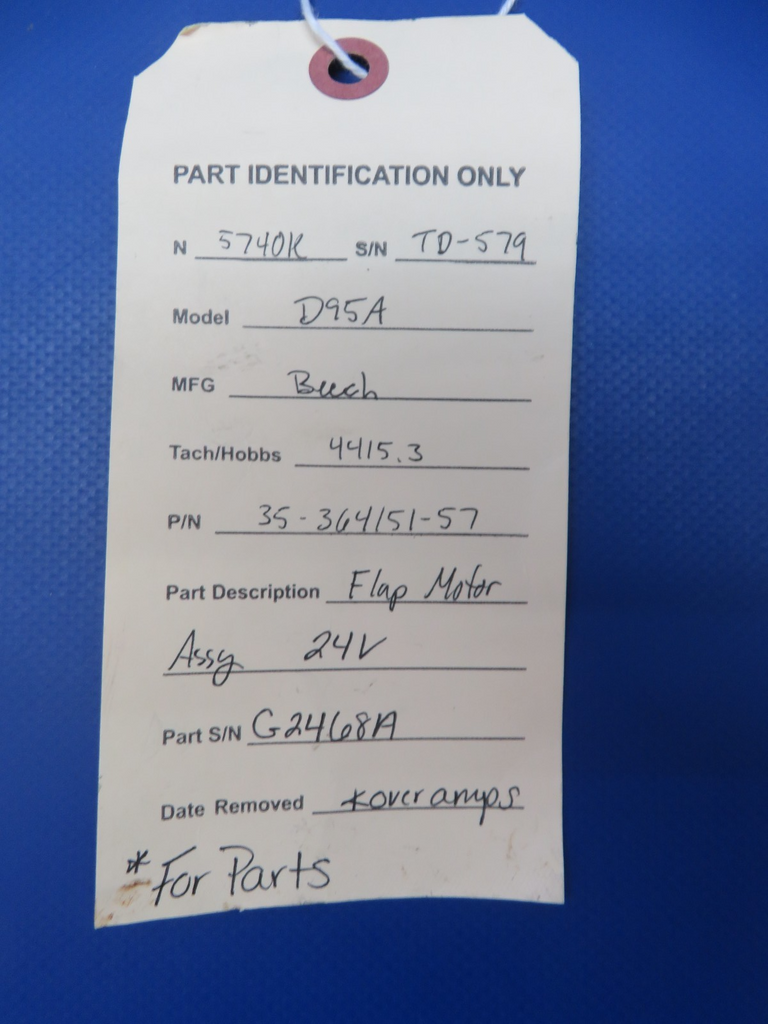 PART IDENTIFICATION ONLY
N 5740K S/N TD-579
Model D95A
MFG Beech
Tach/Hobbs 4415.3
P/N 35-364151-57
Part Description Flap Motor
Assy 24V
Part S/N G2468A
Date Removed *over amps
*For Parts